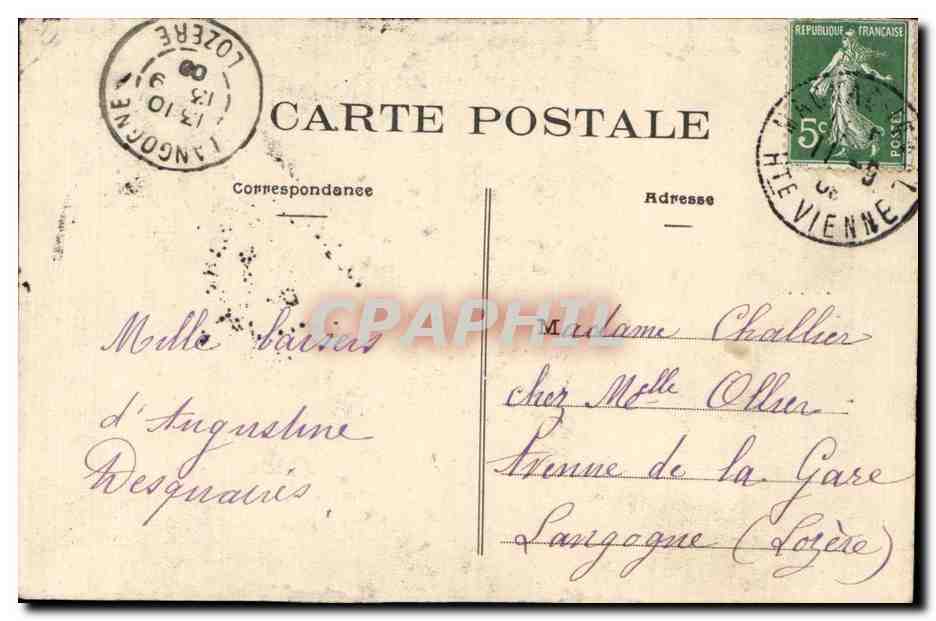 LANGOGNE
LOZERE
13-10
13 9
09
REPUBLIQUE FRANÇAISE
5c
POSTES
HTE VIENNE
CARTE POSTALE
Correspondance
Adresse
CPAPHIL
Mille baisers
d'Augustine
Desquaires
Madame Challier
chez Melle Ollier
Avenue de la Gare
Langogne (Lozère)